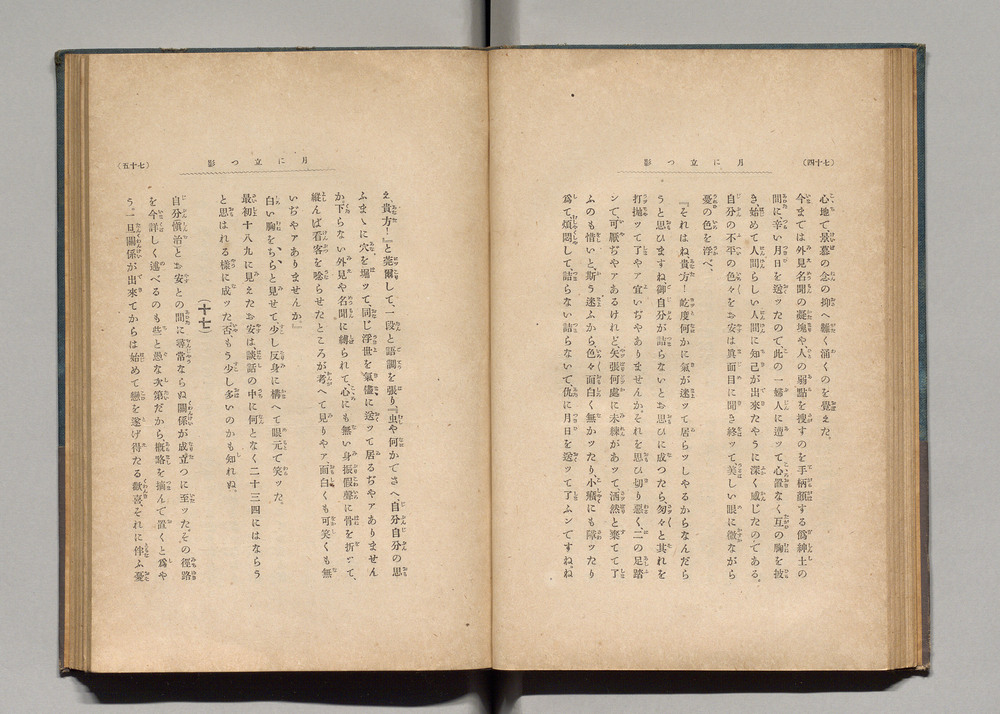 (七十四)
月に立つ影
心地で景慕の念の抑へ難く涌くのを覺えた。
今までは外見名聞の凝塊や、人の弱點を捜すのを手柄顔する僞紳士の
間に辛い月日を送ッたので、此の一婦人に遭ッて心置なく互の胸を披
き、始めて人間らしい人間に知己が出來たやうに深く感じたのである。
自分の不平の色々をお安は眞面目に聞き終ッて、美しい眼に微ながら
憂の色を浮べ、
『それはね、貴方！屹度何かに氣が迷ッて居らッしやるからなんだら
うと思ひますね御自分が詰らないとお思ひに成つたら、匆々と其れを
打抛ッて了やア宜いぢやありませんか、それを思ひ切り惡く、二の足踏
ンで、可厭ぢやアあるけれど、矢張何處に未練があッて、洒然と棄てて了
ふのも惜いと、斯う迷ふから、色々面白く無かッたり小癪にも障ッたり
爲て、煩悶して詰らない詰らないで、仇に月日を送ッて了ふンですね、ね
(七十五)
月に立つ影
え、貴方！』と莞爾して、一段と語調を張り『虫や何かでさへ、自分自分の思
ふまゝに穴を堀ッて、同じ浮世を氣儘に送ッて居るぢやアありません
か、下らない外見や名聞に縛られて、心にも無い身振假聲に骨を折ッて、
縦んば看客を唸らせたところが、考へて見りやア、面白くも可笑くも無
いぢやアありませんか。』
白い胸をちらと見せて、少し反身に構へて眼元で笑ッた。
最初十八九に見えたお安は、談話の中に何となく二十三四にはならう
と思はれる樣に成ッた否、もう少し多いのかも知れぬ。
(十七)
自分愼治とお安との間に尋常ならぬ關係が成立つに至ッた、その徑路
を今詳しく述べるのも些と愚な次第だから概略を摘んで置くと爲や
う、一旦關係が出來てからは始めて戀を遂げ得たる歡喜、それに伴ふ憂